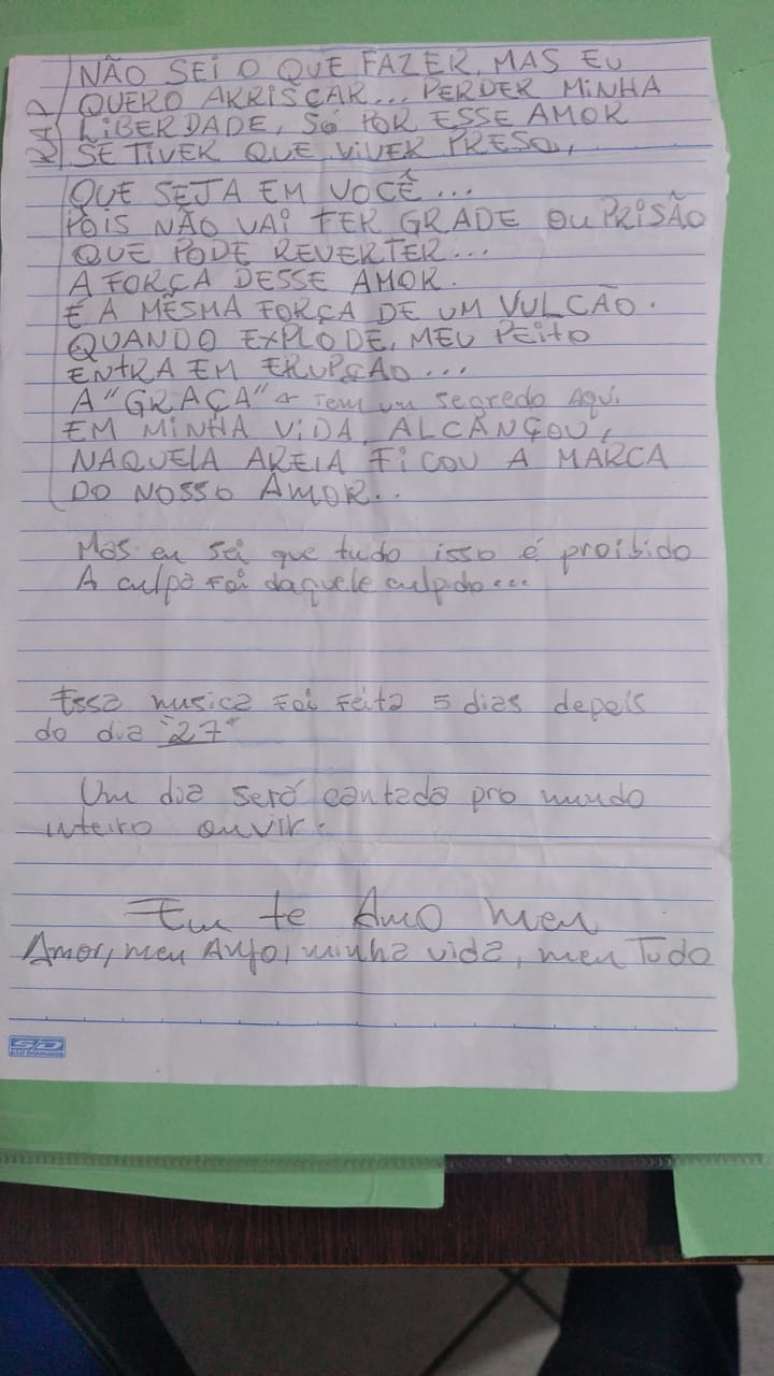 NÃO SEI O QUE FAZER, MAS EU
QUERO ARRISCAR... PERDER MINHA
LIBERDADE, SÓ POR ESSE AMOR
SE TIVER QUE VIVER PRESO,
QUE SEJA EM VOCÊ...
POIS NÃO VAI TER GRADE OU PRISÃO
QUE PODE REVERTER...
A FORÇA DESSE AMOR.
É A MESMA FORÇA DE UM VULCÃO.
QUANDO EXPLODE, MEU PEITO
ENTRA EM ERUPÇÃO...
A "GRAÇA" Tem um segredo Aqui.
EM MINHA VIDA, ALCANÇOU,
NAQUELA AREIA FICOU A MARCA
DO NOSSO AMOR...
Mas eu sei que tudo isso é proibido
A culpa Foi daquele culpido...
Essa musica Foi Feita 5 dias depois
do dia "27"
Um dia será cantada pro mundo
inteiro ouvir.
Eu te Amo meu
Amor, meu Anjo, minha vida, meu Tudo
SD